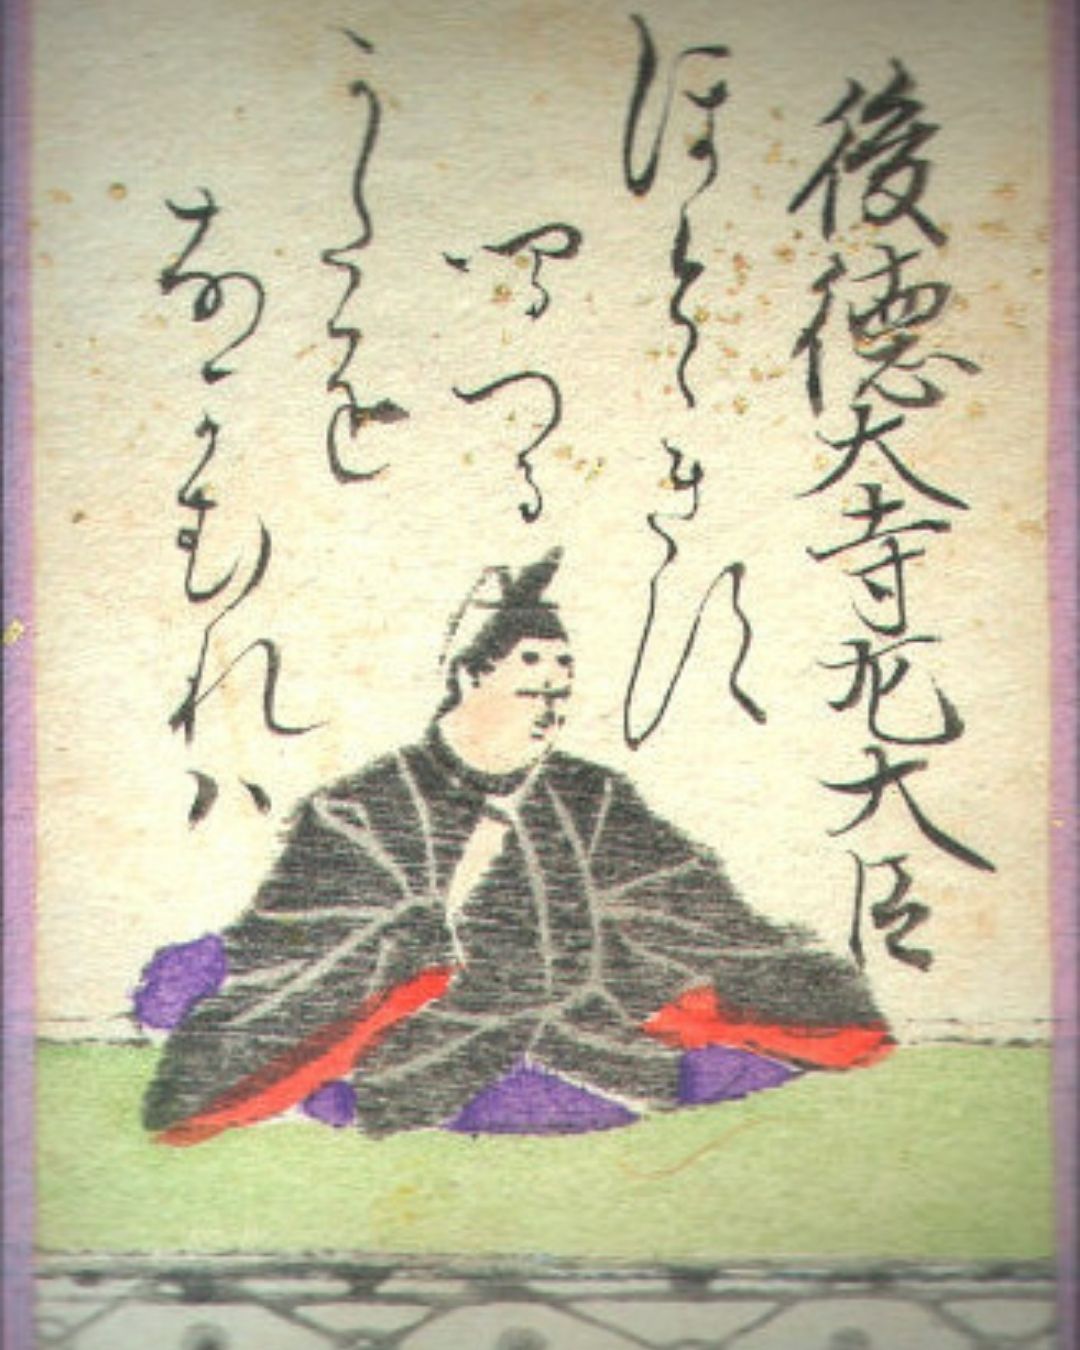 後德大寺左大臣
ほとゝきす
鳴つる
かたを
なかむれハ